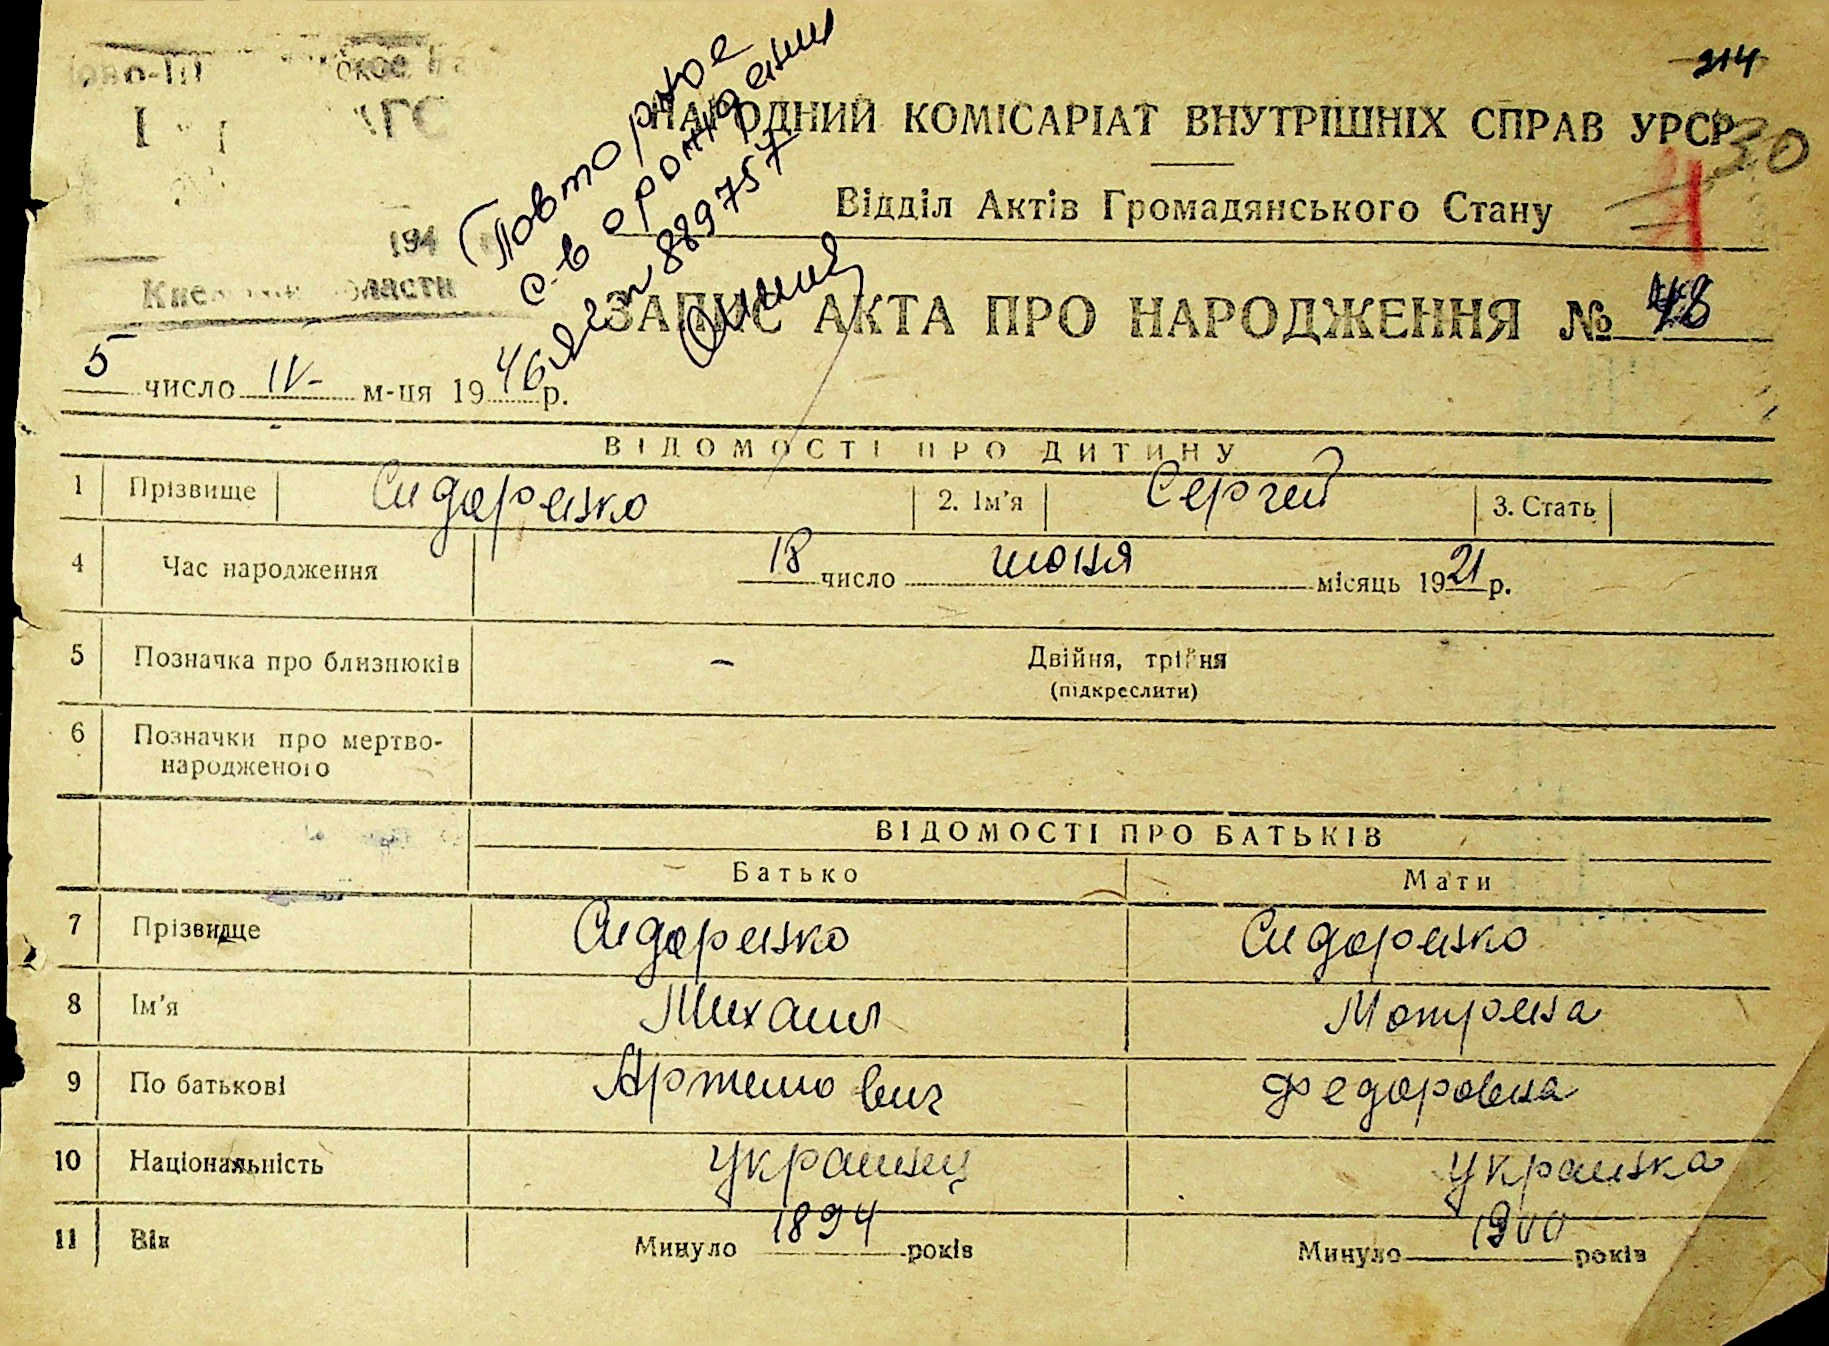 194
Киев области
Повторное
с-во о рождении
889757
214
30
НАРОДНИЙ КОМІСАРІАТ ВНУТРІШНІХ СПРАВ УРСР
Відділ Актів Громадянського Стану
ЗАПИС АКТА ПРО НАРОДЖЕННЯ № 48
5 число IV- м-ця 1946 р.
ВІДОМОСТІ ПРО ДИТИНУ
1 Прізвище Сидоренко 2. Ім'я Сергей 3. Стать
4 Час народження 18 число июня місяць 1921 р.
5 Позначка про близнюків - Двійня, трійня
(підкреслити)
6 Позначки про мертво-
народженого
ВІДОМОСТІ ПРО БАТЬКІВ
Батько Мати
7 Прізвище Сидоренко Сидоренко
8 Ім'я Михаил Мотрена
9 По батькові Артемович Федоровна
10 Національність украинец украинка
11 Вік Минуло 1894 років Минуло 1900 років